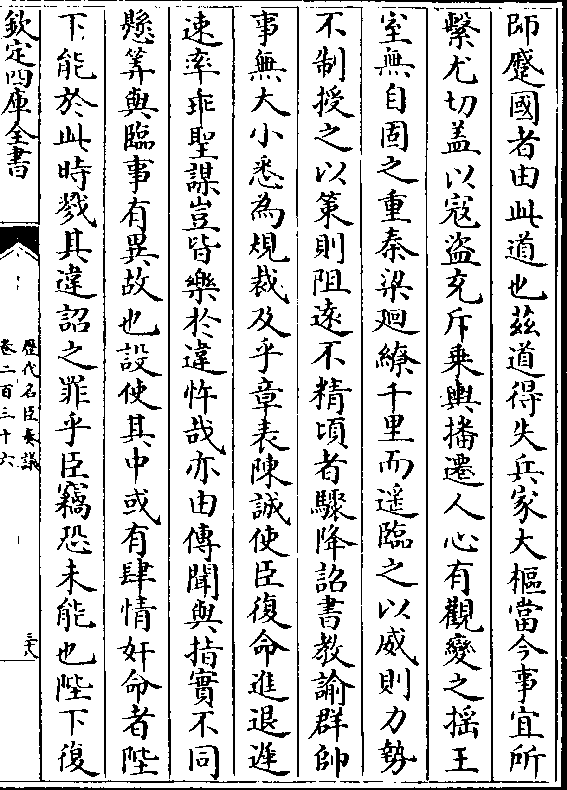 師蹙國者由此道也茲道得失兵家大樞當今事宜所
繫尤切盖以寇盜充斥乗輿播遷人心有觀變之揺王
室無自固之重秦梁廻繚千里而遥臨之以威則力勢
不制授之以策則阻逺不精頃者驟降詔書教諭群帥
事無大小悉為規裁及乎章表陳誠使臣復命進退遲
速率乖聖謀豈皆樂於違忤哉亦由傳聞與指實不同
懸筭與臨事有異故也設使其中或有肆情奸命者陛
下能於此時戮其違詔之罪乎臣竊恐未能也陛下復
欽定四庫全書
歴代名臣奏議
卷二百三十六